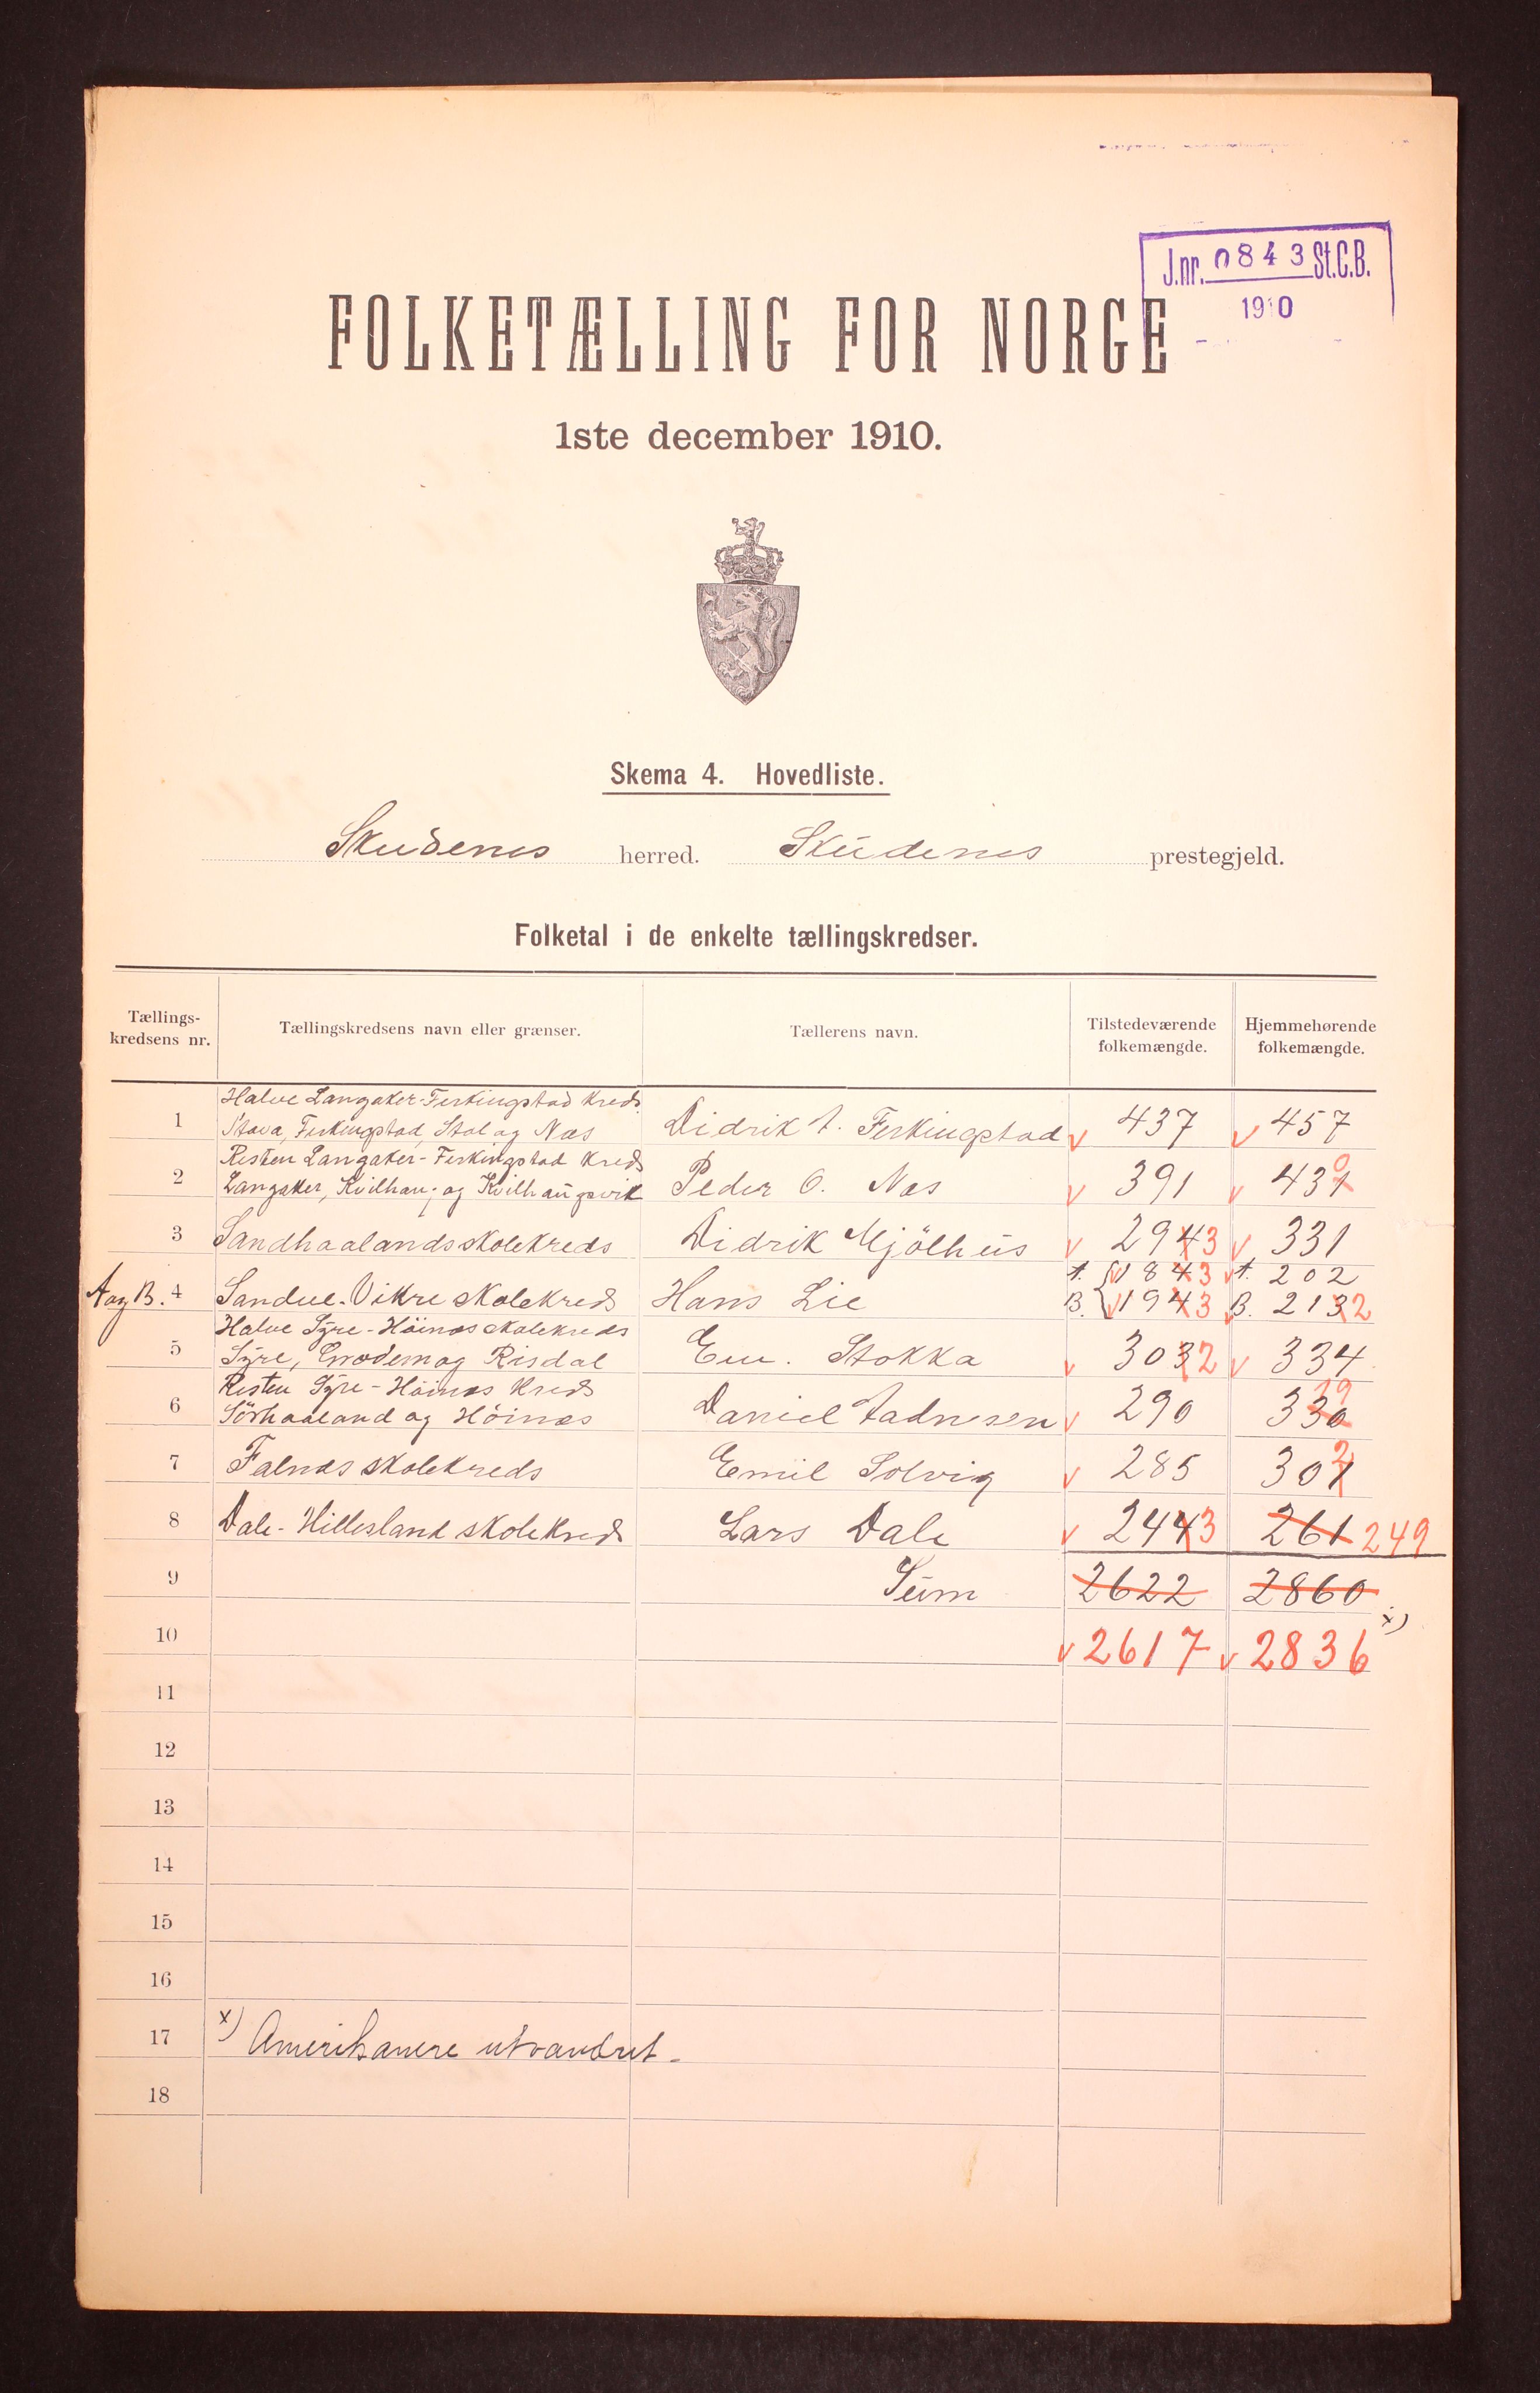 J.nr. 0843 St.C.B.
1910
FOLKETÆLLING FOR NORGE
1ste december 1910.
Skema 4. Hovedliste.
Skudenes herred. Skudenes prestegjeld.
Folketal i de enkelte tællingskredser.
Tællings-kredsens nr. Tællingskredsens navn eller grænser. Tællerens navn. Tilstedeværende folkemængde. Hjemmehørende folkemængde.
Halve Langaker-Ferkingstad Kreds
1 Stava, Ferkingstad, Stol og Næs Didrik A. Ferkingstad 437 457
Resten Langaker-Ferkingstad Kreds
2 Langaker, Kvilhaug og Kvilhaugsvik Peder O. Næs 391 431 0
3 Sandhaalands skolekreds Didrik Mjölhus 294 3 331
A. 184 3 A. 202
A og B. 4 Sandve-Vikre skolekreds Hans Lie B. 194 3 B. 213 2
Halve Syre-Höinæs skolekreds
5 Syre, og Risdal Em. Stokka 303 2 334
Resten Syre-Höinæs Kreds
6 Sörhaaland og Höinæs Daniel Aadnesen 290 330 29
7 Falnæs skolekreds Emil Solvig 285 301 2
8 Dale-Hillesland skolekreds Lars Dale 244 3 261 249
9 Sum 2622 2860
x)
10 2617 2836
11
12
13
14
15
16
17 x) Amerikanere utvandret.
18